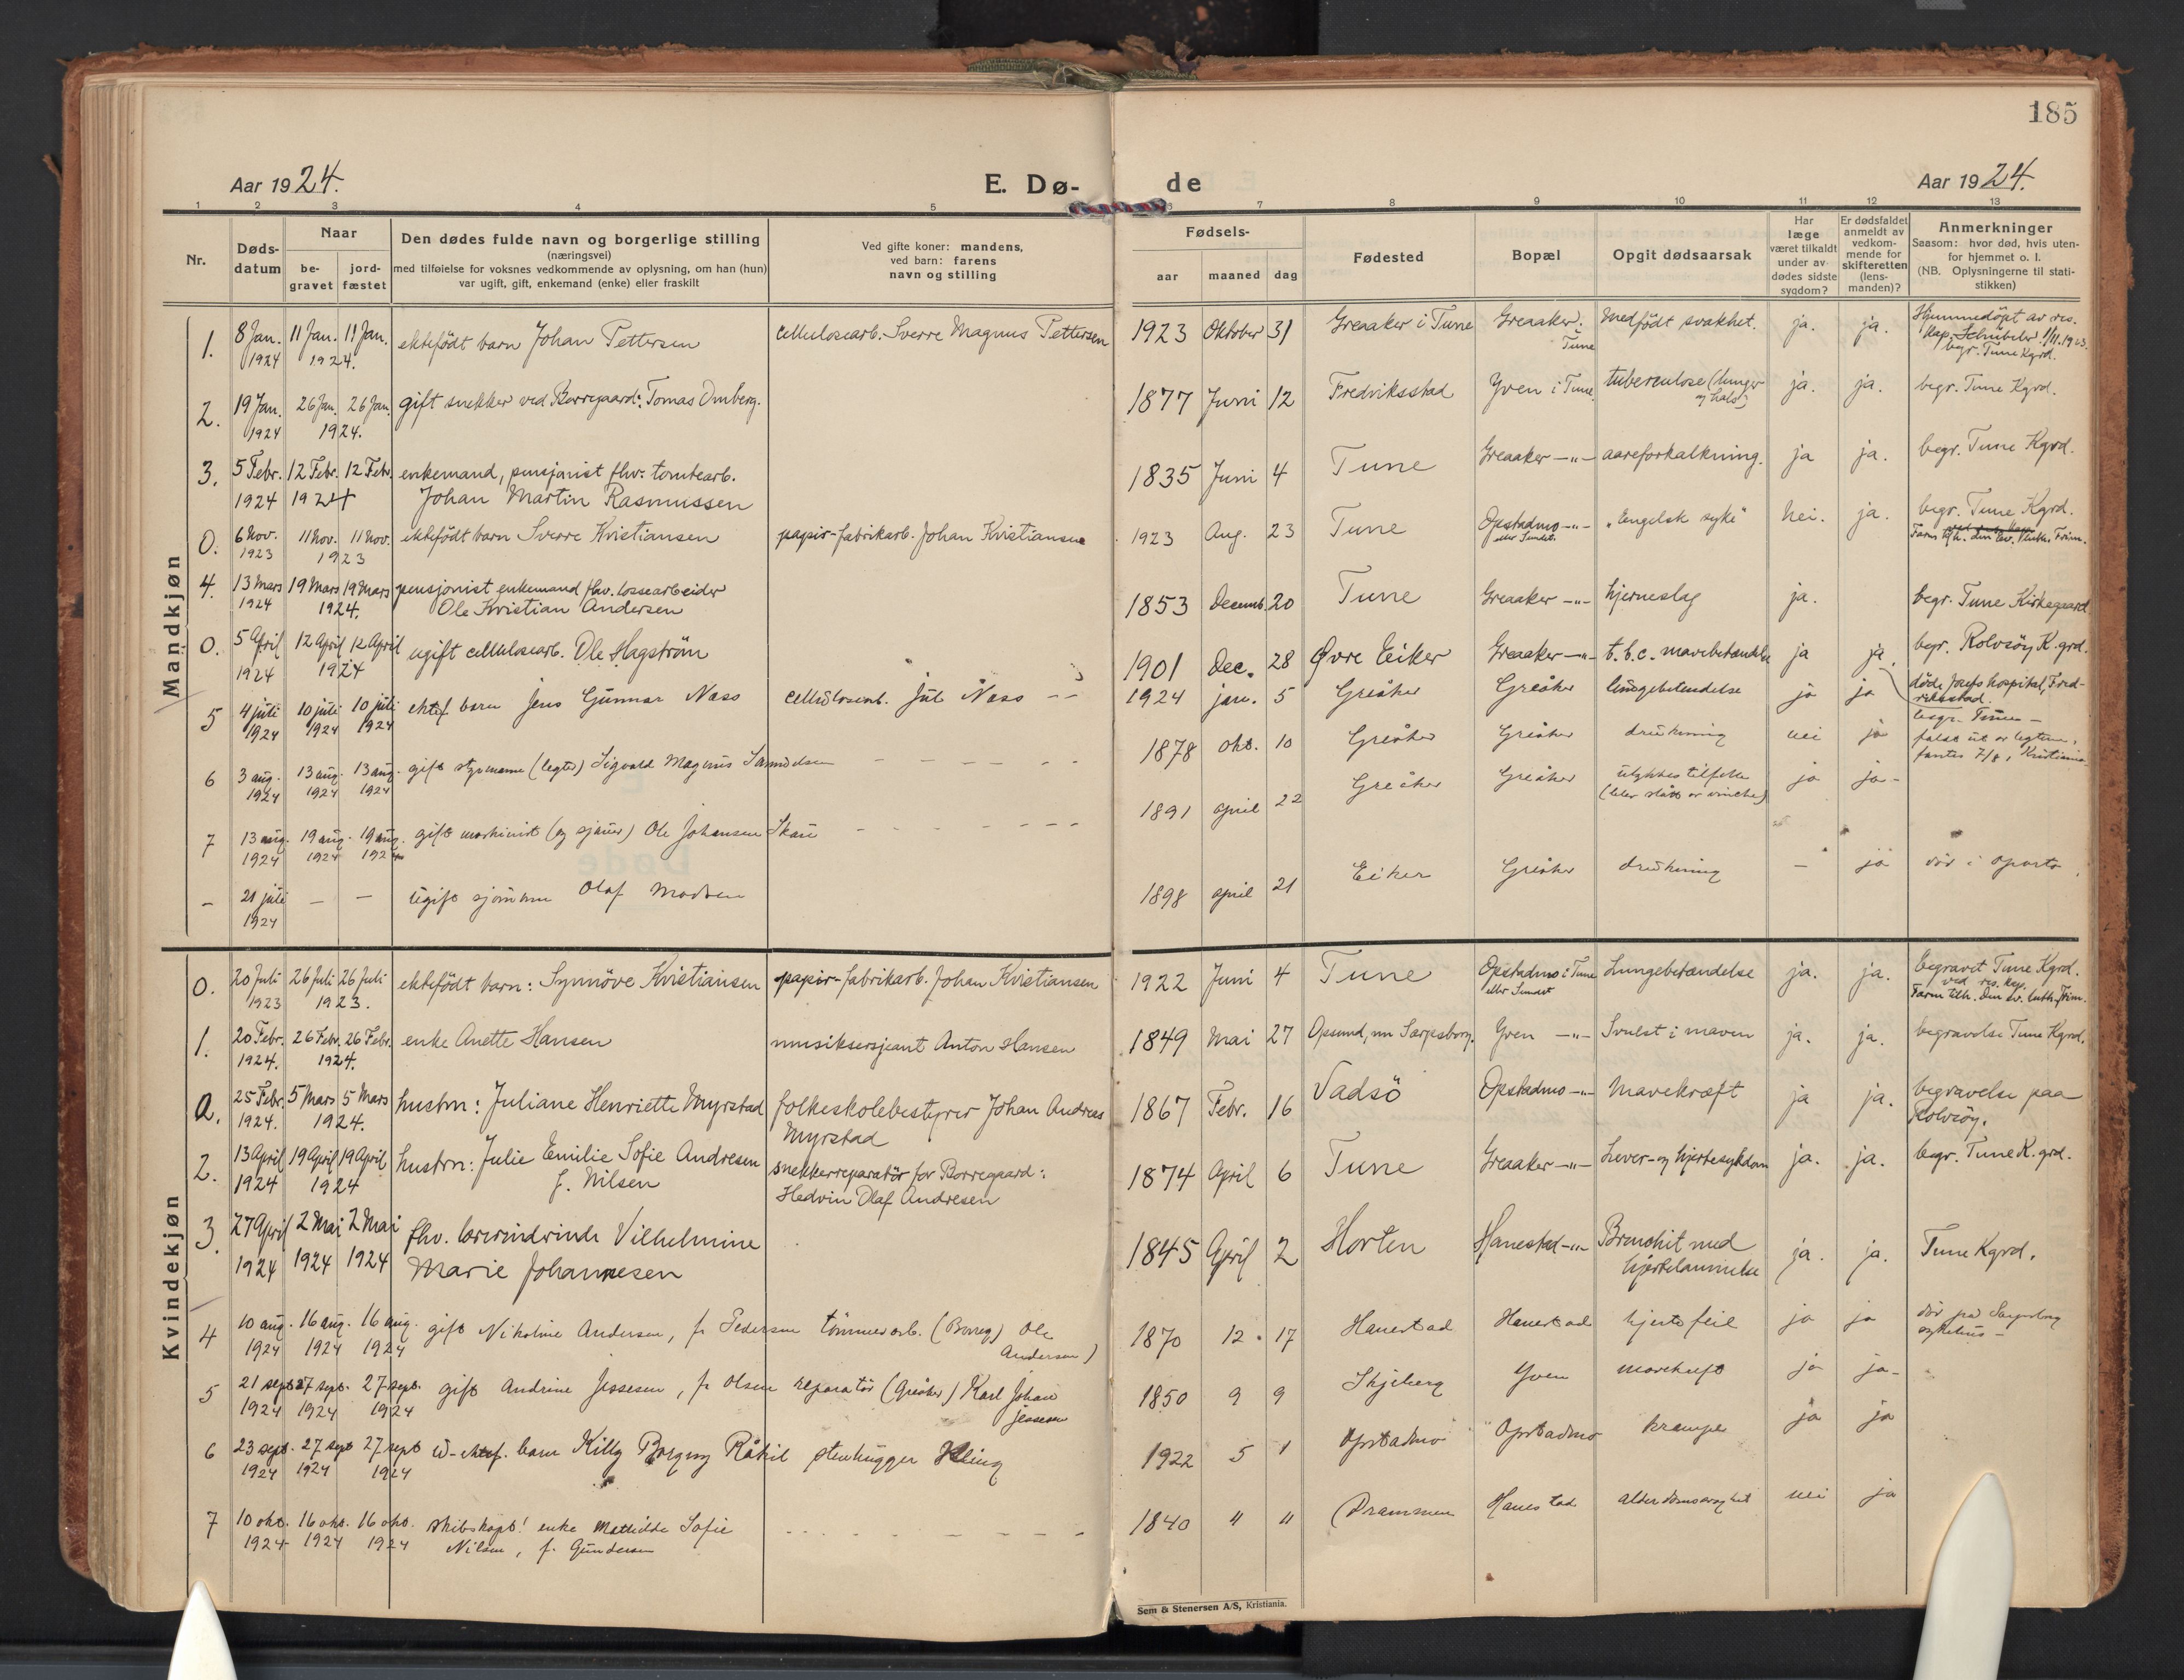 185
Aar 1924.
E. Dø-
de
Aar 1924.
1 2 3 4 5 6 7 8 9 10 11 12 13
Nr.
Døds-
datum
Naar
be-
gravet
jord-
fæstet
Den dødes fulde navn og borgerlige stilling
(næringsvei)
med tilføielse for voksnes vedkommende av oplysning, om han (hun)
var ugift, gift, enkemand (enke) eller fraskilt
Ved gifte koner: mandens,
ved barn: farens
navn og stilling
Fødsels-
aar maaned dag
Fødested
Bopæl
Opgit dødsaarsak
Har
læge
været tilkaldt
under av-
dødes sidste
sygdom?
Er dødsfaldet
anmeldt av
vedkom-
mende for
skifteretten
(lens-
manden)?
Anmerkninger
Saasom: hvor død, hvis uten-
for hjemmet o. l.
(NB. Oplysningerne til stati-
stikken)
Mandkjøn
1. 8 Jan. 1924 11 Jan. 11 Jan. 1924. ektefödt barn Johan Pettersen cellulosearb. Sverre Magnus Pettersen 1923 Oktober 31 Greaaker i Tune Greaaker i Tune Medfödt svakhet. ja. ja. Hjemmedöpt av res. kap. Schübeler 1/11.1923. begr. Tune Kgrd.
2. 19 Jan. 1924 26 Jan. 26 Jan. 1924. gift snekker ved Borregaard: Tomas Omberg. 1877 Juni 12 Fredriksstad Yven i Tune tuberculose (lunger og hals) ja. ja. begr. Tune Kgrd.
3. 5 Febr. 1924 12 Febr. 12 Febr. 1924 enkemand, pensjonist fhv. tomtearb.
Johan Martin Rasmussen 1835 Juni 4 Tune Greaaker -"- aareforkalkning. ja ja. begr. Tune Kgrd.
0. 6 Nov. 1923 11 Nov. 11 Nov. 1923 ektefödt barn Sverre Kristiansen papir-fabrikarb. Johan Kristiansen 1923 Aug. 23 Tune Opstadmo -"- eller Sundet. "Engelsk syke" nei. ja. begr. Tune Kgrd.
4. 13 Mars 1924 19 Mars 19 Mars 1924. pensjonist enkemand fhv. lossearbeider
Ole Kristian Andersen 1853 Decemb. 20 Tune Greaaker -"- hjerneslag ja. begr. Tune Kirkegaard
0. 5 April 1924 12 April 12 April 1924 ugift cellulosearb. Ole Hagström 1901 Dec. 28 Øvre Eiker Greaaker -"- t.b.c. mavebetændelse ja ja. begr. Rolvsöy K.grd.
döde Josefs hospital, Fred-
rikstad.
5 4 juli 1924 10 juli 1924 10 juli 1924 ektef. barn Jens Gunnar Næss cellulosearb. Jul Næss 1924 jan. 5 Greåker Greåker lungebetendelse ja ja begr. Tune -
6 3 aug. 1924 13 aug. 1924 13 aug. 1924 gift styrmann (legter) Sigvald Magnus Samuelsen 1878 okt. 10 Greåker Greåker drukning nei ja falt ut av legteren, fantes 7/8 i Kristiania
7 13 aug. 1924 19 aug. 1924 19 aug. 1924 gift maskinist (og sjauer) Ole Johansen Skau 1891 april 22 Greåker Greåker ulykkestilfelle ja ja-
- 21 juli 1924 - - ugift sjömann Olaf Madsen 1898 april 21 Eiker Greåker drukning - ja död i Oporto
Kvindekjøn
0. 20 Juli 1923 26 Juli 26 Juli 1923. ektefödt barn: Synnöve Kristiansen papir-fabrikarb. Johan Kristiansen 1922 Juni 4 Tune Opstadmo i Tune eller Sundet Lungebetændelse ja. ja. Begravet Tune Kgrd. ved res. kap. Farm tilh. den ev. luth. Frim.
1. 20 Febr. 1924. 26 Febr. 26 Febr. 1924. enke Anette Hansen musiksersjeant Anton Hansen 1849 Mai 27 Opsund, nu Sarpsborg. Yven -"- Svulst i maven ja. ja. begravelse Tune Kgrd.
2. 25 Febr. 1924. 5 Mars 5 Mars 1924. hustru: Juliane Henriette Myrstad folkeskolebestyrer Johan Andreas
Myrstad 1867 Febr. 16 Vadsö Opstadmo -"- Mavekræft ja ja. begravelse paa Rolvsöy.
2. 13 April 1924 19 April 19 April 1924 hustru: Julie Emilie Sofie Andresen
f. Nilsen snekkerreparatör for Borregaard:
Hedvin Olaf Andresen 1874 April 6 Tune Greaaker -"- Lever- og hjertesykdom ja. ja. begr. Tune K.grd.
3. 27 April 1924 2 Mai 1924 2 Mai 1924 fhv. lærerindrinde Vilhelmine
Marie Johannesen 1845 April 2 Horten Hanestad -"- Bronchit med
hjertelammelse ja. ja. Tune Kgrd.
4 10 aug. 1924 16 aug. 1924 16 aug. 1924 gift Nikoline Andersen, f. Pedersen tömmerarb. (Borreg.) Ole
Andersen) 1870 12. 17 Hanestad Hanestad hjertefeil ja ja död på Sarpsborg
sykehus -
5 21 sept. 1924 27 sept. 1924 27 sept. 1924 gift Andrine Jessesen, f. Olsen reparatör (Greåker) Karl Johan
Jessesen 1850 9 9 Skjeberg Yven mavekreft ja ja-
6 23 sept. 1924 27 sept 1924 27 sept 1924 u-ektef. barn Killy Borgny Råkil stenhugger Kling 1922 5 1 Opstadmo Opstadmo krampe ja ja
7 10 okt. 1924 16 okt. 1924 16 okt. 1924 skibskapt. enke Mathilde Sofie
Nilsen, f. Gundersen 1840 " " Drammen Hanestad alderdomssvaghet nei ja
Sem & Stenersen A/S, Kristiania.